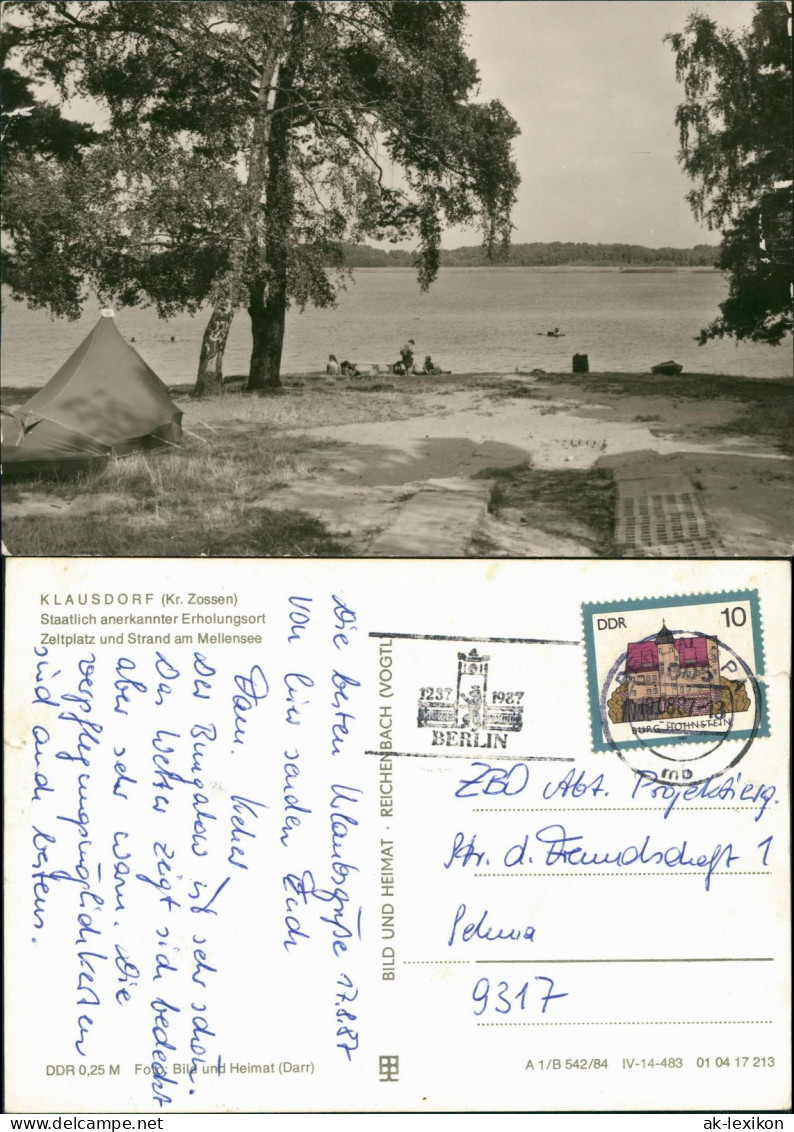 KLAUSDORF (Kr. Zossen)
Staatlich anerkannter Erholungsort
Zeltplatz und Strand am Mellensee
Die besten Urlaubsgrüße 17.8.87
von hier senden Euch
Fam.
Der Bungalow ist sehr schön.
Das Wetter zeigt sich bedeckt
aber sehr warm. Die
Verpflegungsmöglichkeiten
sind auch bestens.
BILD UND HEIMAT · REICHENBACH (VOGTL
1237 1987
BERLIN
DDR 10
BURG HOHNSTEIN
mb
ZBO Abt. Projektierg.
Str. d. Freundschaft 1
Sehma
9317
DDR 0,25 M Foto: Bild und Heimat (Darr)
A 1/B 542/84 IV-14-483 01 04 17 213
ak-lexikon
ak-lexikon.com